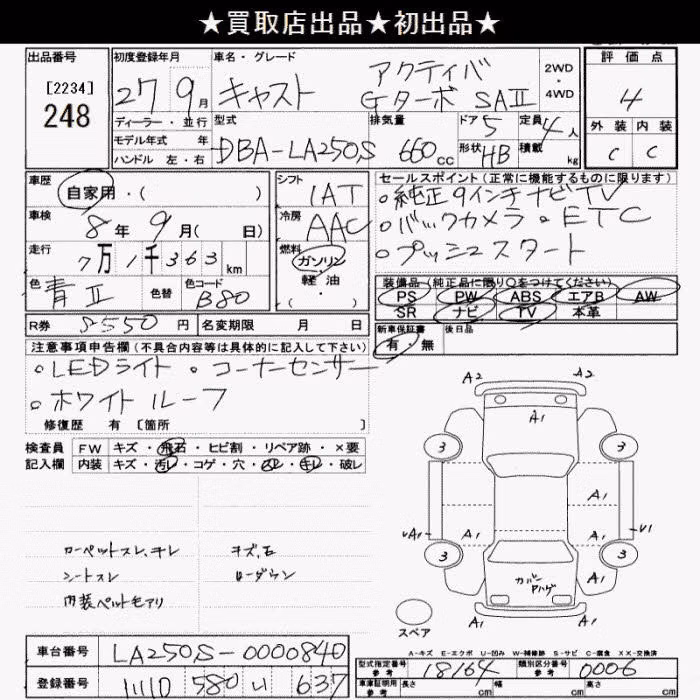 ★買取店出品★初出品★
出品番号
[2234]
248
初度登録年月
27 9月
車名・グレード
キャスト アクティバ GターボSAⅡ
2WD・4WD
評価点
4
外装 内装
C C
ディーラー・並行
モデル年式 年
ハンドル 左・右
型式
DBA-LA250S
排気量
660cc
ドア 5
形状 HB
定員 4人
積載 kg
車歴
自家用・( )
車検
8年 9月( 日)
走行
7万1千363km
色
青Ⅱ
色替
色コード
B80
シフト
IAT
冷房
AAC
燃料
ガソリン
軽・油
・( )
セールスポイント(正常に機能するものに限ります)
○純正9インチナビTV
○バックカメラ ○ETC
○プッシュスタート
装備品(純正品に限り○をつけてください)
PS PW ABS エアB AW
SR ナビ TV 本革
R券 8550円 名変期限 月 日
新車保証書
有・無
後日品
注意事項申告欄(不具合内容等は具体的に記入して下さい)
○LEDライト ○コーナーセンサー
○ホワイトルーフ
修復歴 有[箇所 ]
検査員
記入欄
FW キズ・飛石・ヒビ割・リペア跡・×要
内装 キズ・汚レ・コゲ・穴・スレ・キレ・破レ
カーペットスレ、キレ
シートスレ
内装ペットモアリ
キズ、石
ローダウン
A2 A2
A1
3 3
A1
A1
A1
3 3
A1
A1 A1
カバー
スペア
A-キズ E-エクボ U-凹み W-補修跡 S-サビ C-腐食 XX-交換済
車台番号
LA250S-0000840
登録番号
580 い 637
型式指定番号
参考
18164
類別区分番号
参考
0006
車庫証明用
参考
長さ cm
幅 cm
高さ cm